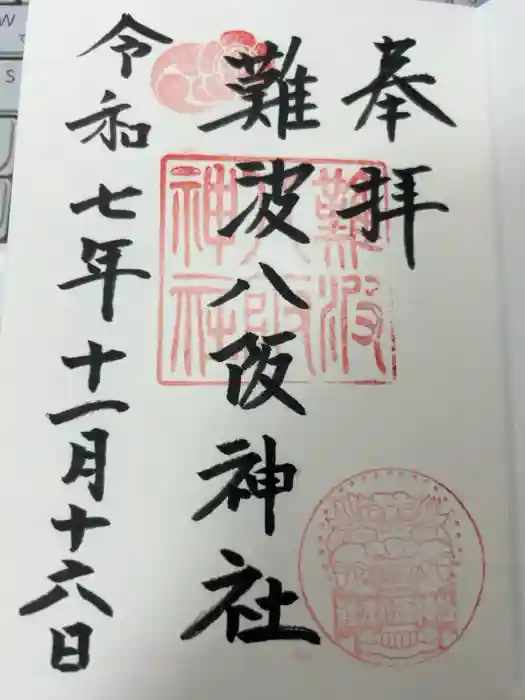 奉拝
難波八阪神社
令和七年十一月十六日
難波
八阪
神社
W
S